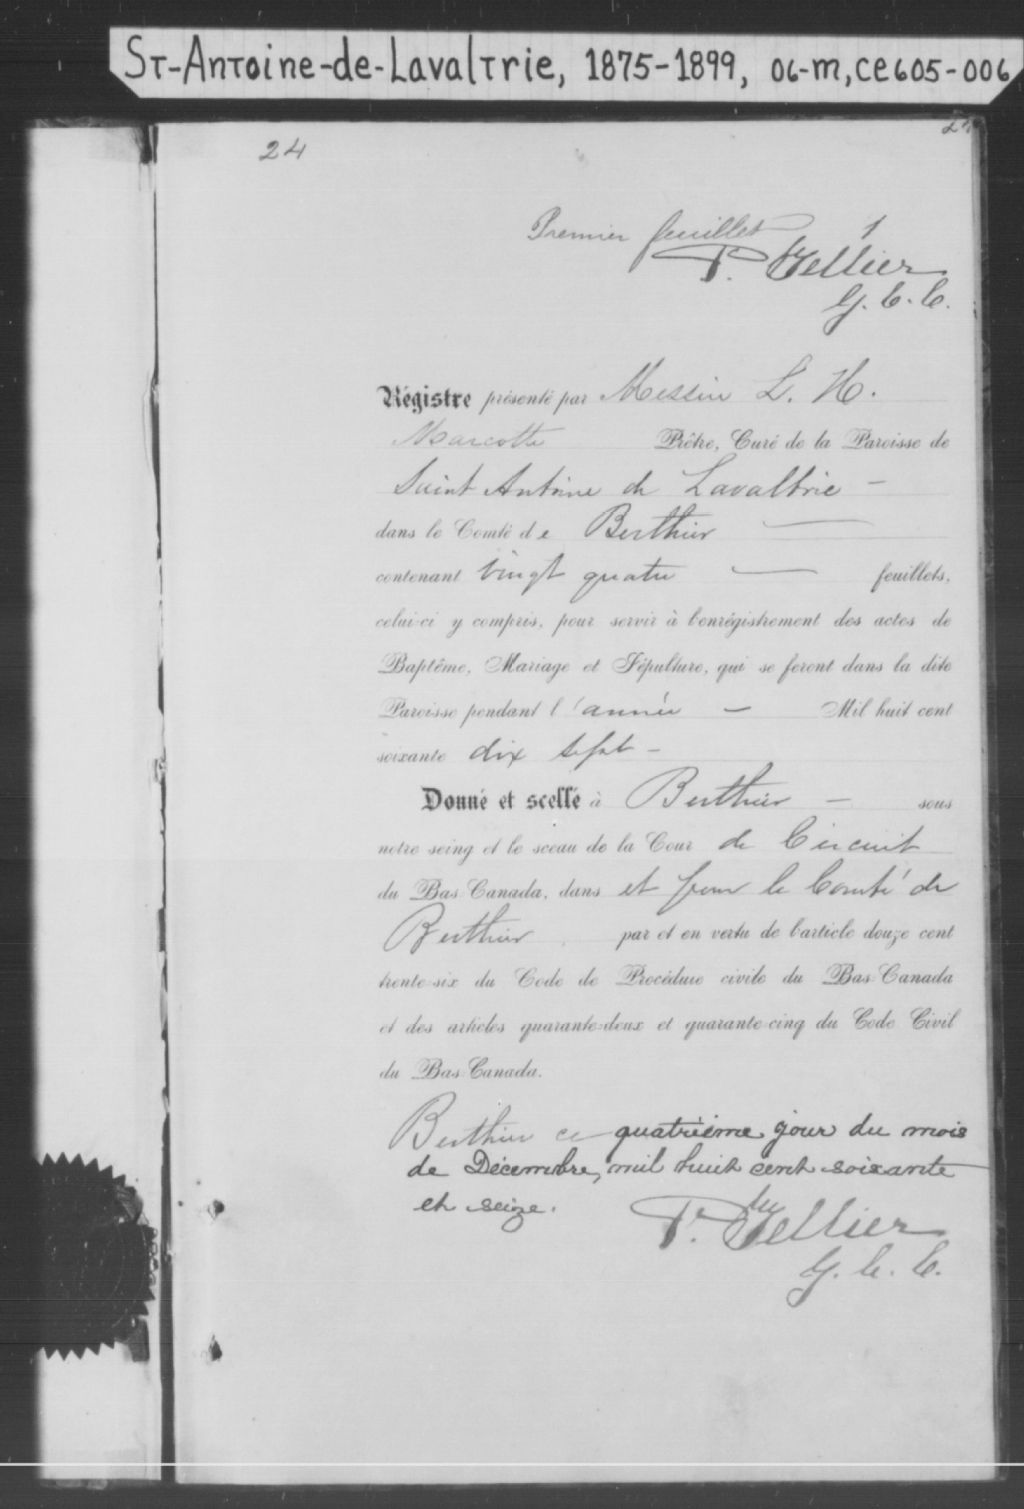 St-Antoine-de-Lavaltrie, 1875-1899, 06-M, CE605-006
24
Premier feuillet 1
P. Tellier
G. C. C.
Régistre présenté par Messire L. H.
Marcotte Prêtre, Curé de la Paroisse de
Saint Antoine de Lavaltrie –
dans le Comté de Berthier —
contenant vingt quatre — feuillets,
celui-ci y compris, pour servir à l'enrégistrement des actes de
Baptême, Mariage et Sépulture, qui se feront dans la dite
Paroisse pendant l'année – Mil huit cent
soixante dix sept –
Donné et scellé à Berthier – sous
notre seing et le sceau de la Cour de Circuit
du Bas-Canada, dans et pour le Comté de
Berthier par et en vertu de l'article douze cent
trente-six du Code de Procédure civile du Bas-Canada
et des articles quarante-deux et quarante-cinq du Code Civil
du Bas-Canada.
Berthier ce quatrième jour du mois
de Décembre, mil huit cent soixante
et seize.
P. Tellier
G. C. C.